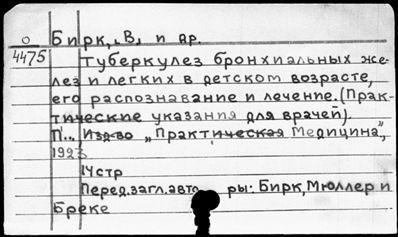 О Бирк, В, и др.
4475 Туберкулез бронхиальных же-
лез и легких в детском возрасте,
его распознавание и лечение. (Прак-
тические указания для врачей).
П... Изд-во "Практическая Медицина",
1923
Чстр
Перед. загл. авто ры: Бирк, Мюллер и
Бреке